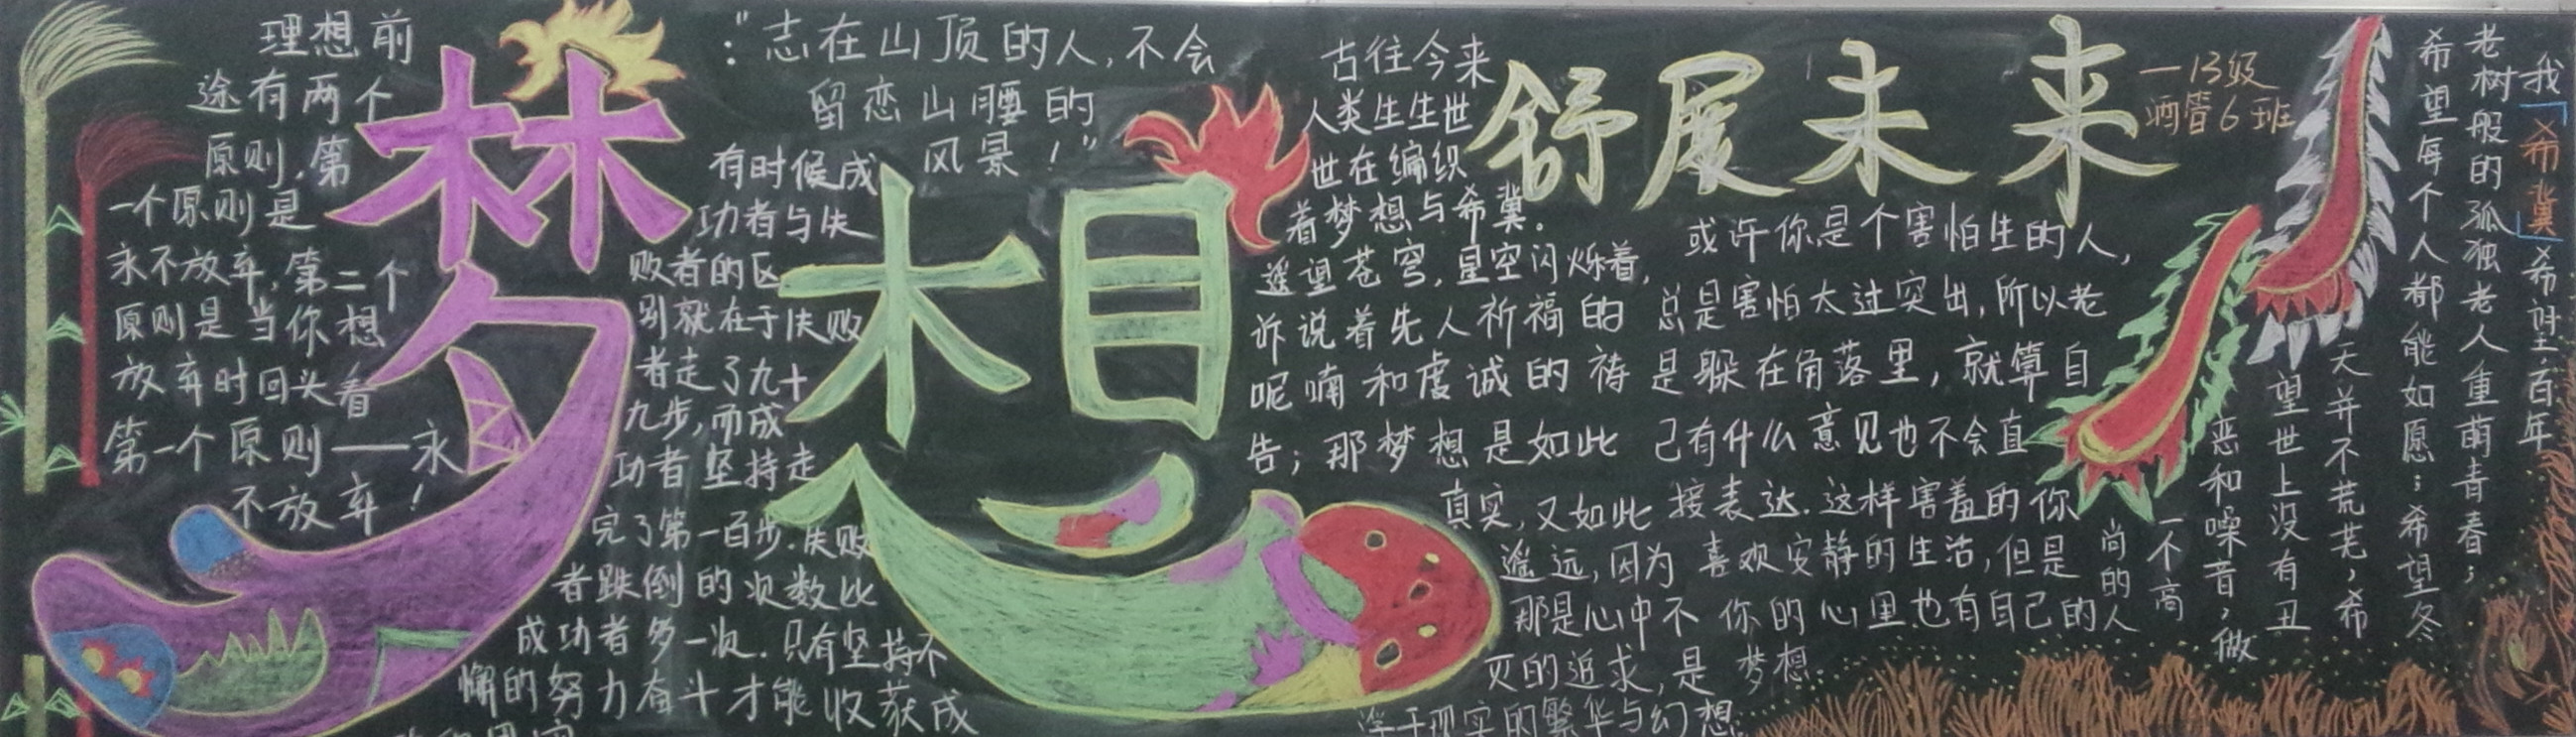 梦想
舒展未来
—13级
酒管6班
理想前
途有两个
原则,第
一个原则是
永不放弃,第二个
原则是当你想
放弃时回头看
第一个原则——永
不放弃!
:"志在山顶的人,不会
留恋山腰的
风景!"
有时候成
功者与失
败者的区
别就在于失败
者走了九十
九步,而成
功者坚持走
完了第一百步.失败
者跌倒的次数比
成功者多一次.只有坚持不
懈的努力奋斗才能收获成
古往今来
人类生生世
世在编织
着梦想与希冀.
遥望苍穹,星空闪烁着,
诉说着先人祈福的
呢喃和虔诚的祷
告;那梦想是如此
真实,又如此
遥远,因为
那是心中不
灭的追求,是
浮于现实的繁华与幻想.
或许你是个害怕生的人,
总是害怕太过突出,所以老
是躲在角落里,就算自
己有什么意见也不会直
接表达.这样害羞的你
喜欢安静的生活,但是
你的心里也有自己的
梦想.
我「希冀」希望百年
老树般的孤独老人重萌青春;
希望每个人都能如愿;希望冬
天并不荒芜,希
望世上没有丑
恶和噪音,做
一不高
尚的人